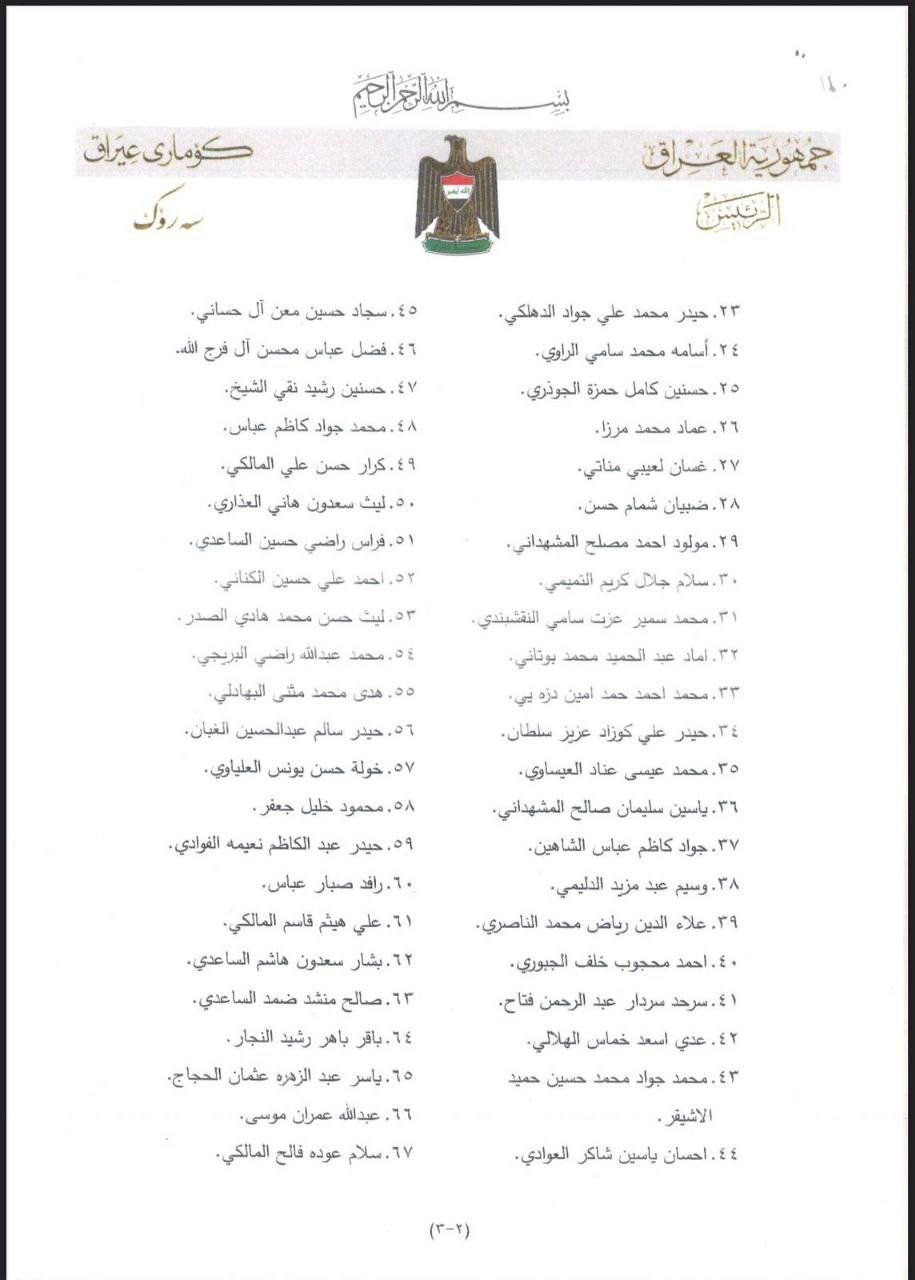 بسم الله الرحمن الرحيم
جمهورية العراق
الرئيس
كۆماری عێراق
سەرۆک
الله اكبر
٢٣. حيدر محمد علي جواد الدهلكي.
٢٤. أسامه محمد سامي الراوي.
٢٥. حسنين كامل حمزة الجوذري.
٢٦. عماد محمد مرزا.
٢٧. غسان لعيبي مناتي.
٢٨. ضبيان شمام حسن.
٢٩. مولود احمد مصلح المشهداني.
٣٠. سلام جلال كريم التميمي.
٣١. محمد سمير عزت سامي النقشبندي.
٣٢. اماد عبد الحميد محمد بوتاني.
٣٣. محمد احمد حمد امين دزه يي.
٣٤. حيدر علي كوزاد عزيز سلطان.
٣٥. محمد عيسى عناد العيساوي.
٣٦. ياسين سليمان صالح المشهداني.
٣٧. جواد كاظم عباس الشاهين.
٣٨. وسيم عبد مزيد الدليمي.
٣٩. علاء الدين رياض محمد الناصري.
٤٠. احمد محجوب خلف الجبوري.
٤١. سرحد سردار عبد الرحمن فتاح.
٤٢. عدي اسعد خماس الهلالي.
٤٣. محمد جواد محمد حسين حميد
الاشيقر.
٤٤. احسان ياسين شاكر العوادي.
٤٥. سجاد حسين معن آل حساني.
٤٦. فضل عباس محسن آل فرج الله.
٤٧. حسنين رشيد نقي الشيخ.
٤٨. محمد جواد كاظم عباس.
٤٩. كرار حسن علي المالكي.
٥٠. ليث سعدون هاني العذاري.
٥١. فراس راضي حسين الساعدي.
٥٢. احمد علي حسين الكناني.
٥٣. ليث حسن محمد هادي الصدر.
٥٤. محمد عبدالله راضي البريجي.
٥٥. هدى محمد مثنى البهادلي.
٥٦. حيدر سالم عبدالحسين الغبان.
٥٧. خولة حسن يونس العلياوي.
٥٨. محمود خليل جعفر.
٥٩. حيدر عبد الكاظم نعيمه الفوادي.
٦٠. رافد صبار عباس.
٦١. علي هيثم قاسم المالكي.
٦٢. بشار سعدون هاشم الساعدي.
٦٣. صالح منشد ضمد الساعدي.
٦٤. باقر باهر رشيد النجار.
٦٥. ياسر عبد الزهره عثمان الحجاج.
٦٦. عبدالله عمران موسى.
٦٧. سلام عوده فالح المالكي.
(٢-٣)